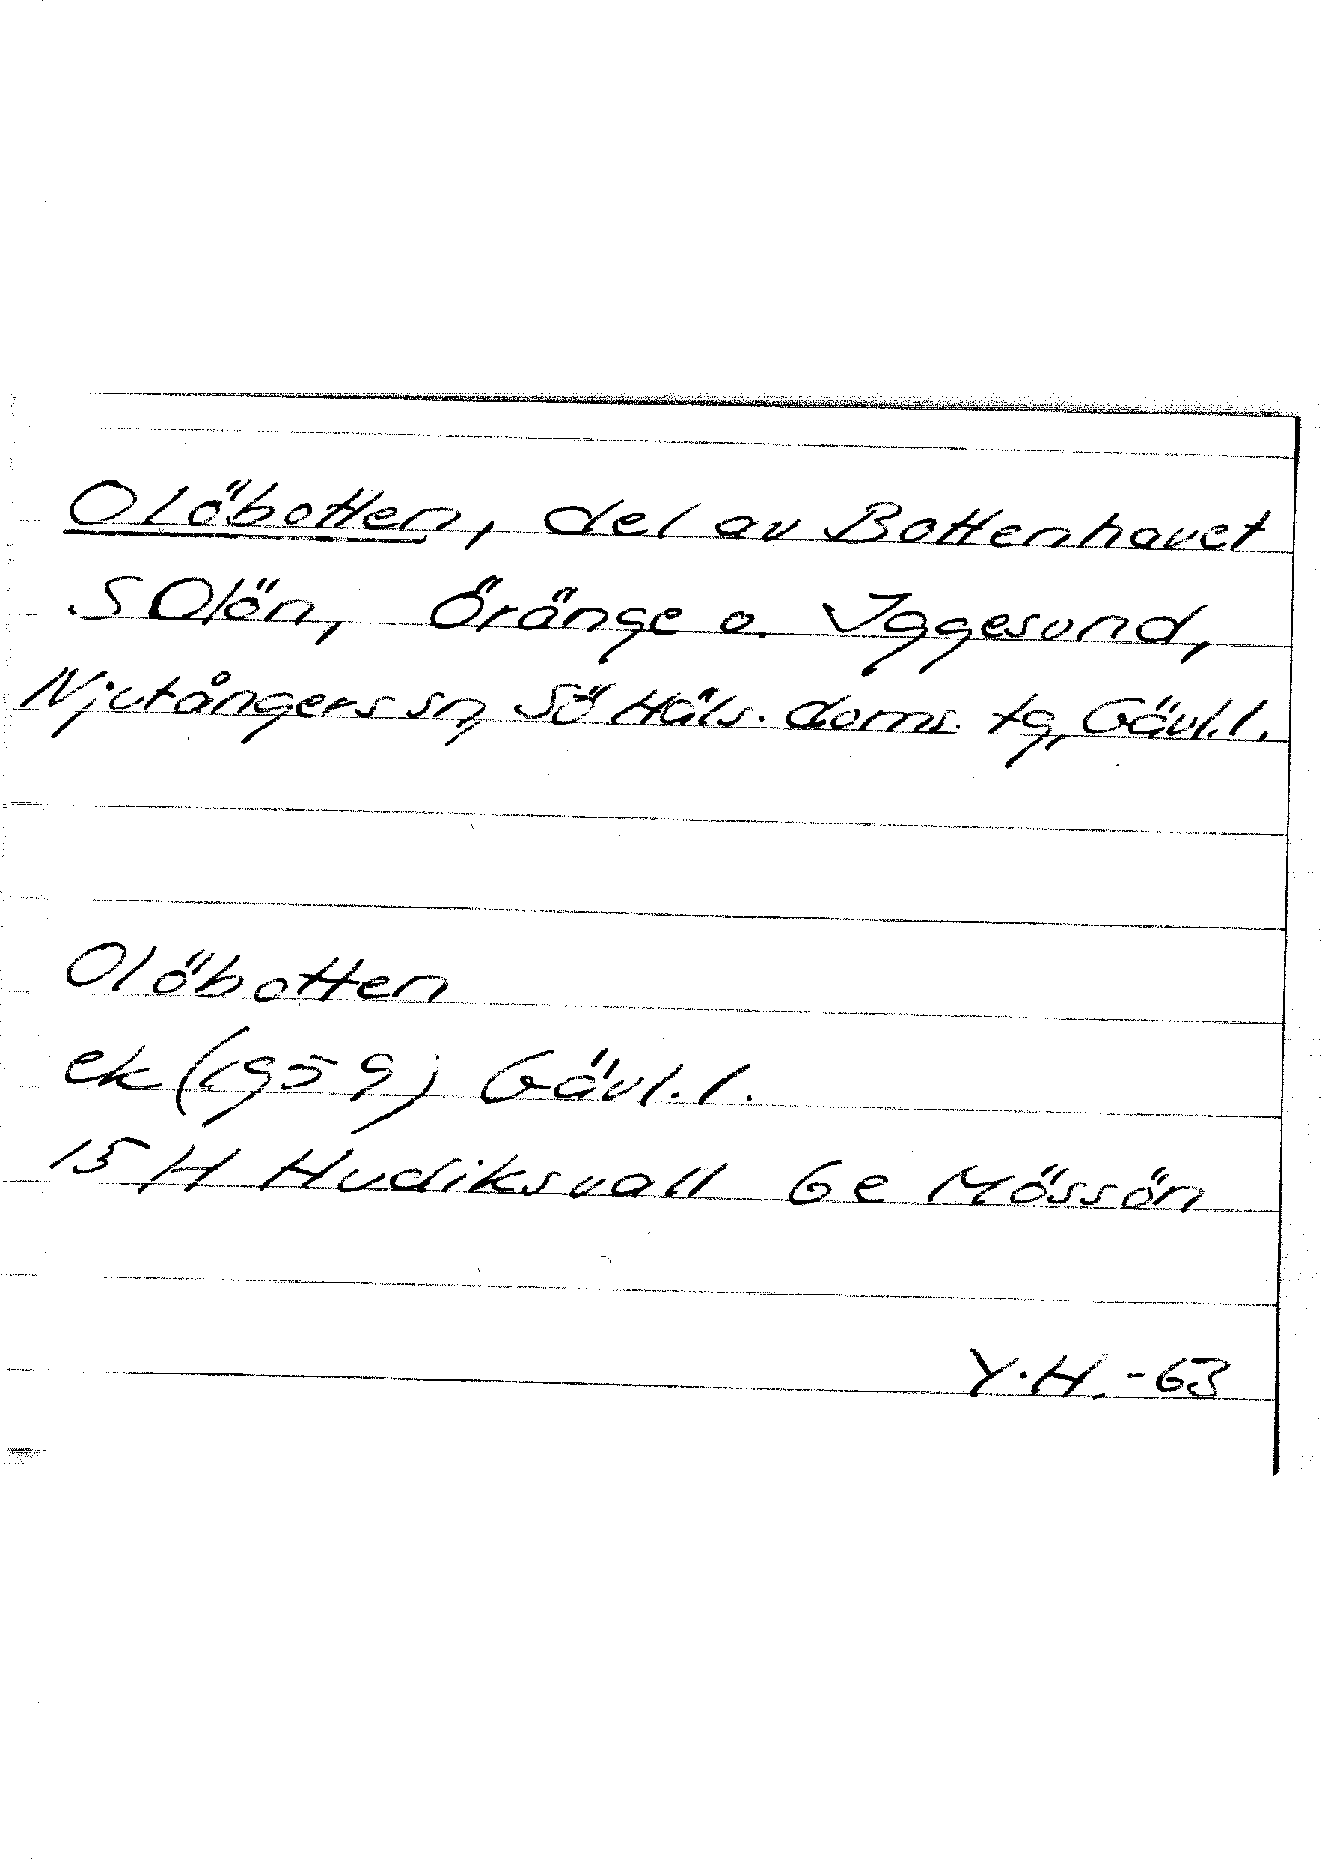 Olöbotten, del av Bottenhavet
S Olön, Öränge o. Iggesund,
Njutångers sn, Sö Häls. doms. tg, Gävl. l.
Olöbotten
ek (1959) Gävl. l.
15 H Hudiksvall 6e Mössön
Y.H. -63